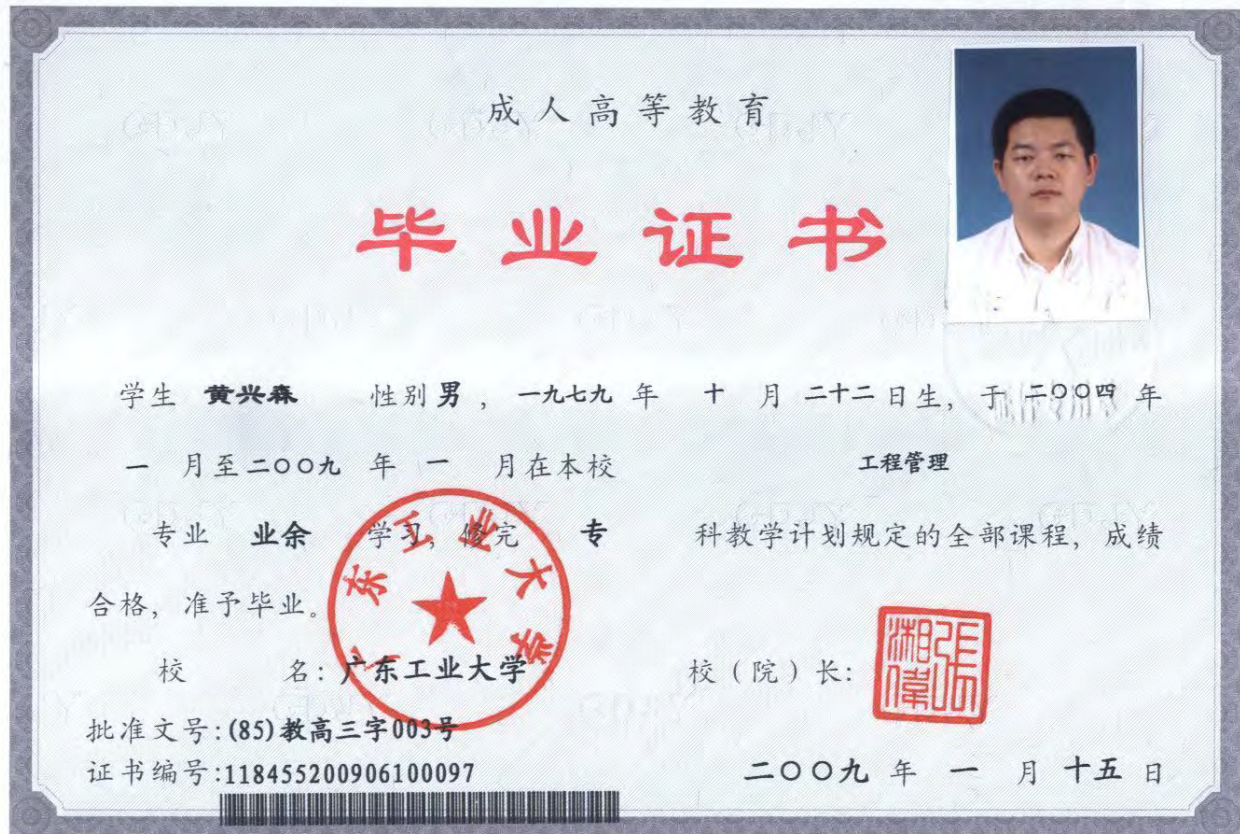 成人高等教育
毕业证书
学生 黄兴森 性别 男 ， 一九七九 年 十 月 二十二 日生，于 二〇〇四 年
一 月至 二〇〇九 年 一 月在本校 工程管理
专业 业余 学习，修完 专 科教学计划规定的全部课程，成绩
合格，准予毕业。
广东工业大学
校 名：广东工业大学 校（院）长：
张湘伟
批准文号：(85)教高三字003号
证书编号：118455200906100097 二〇〇九 年 一 月 十五 日